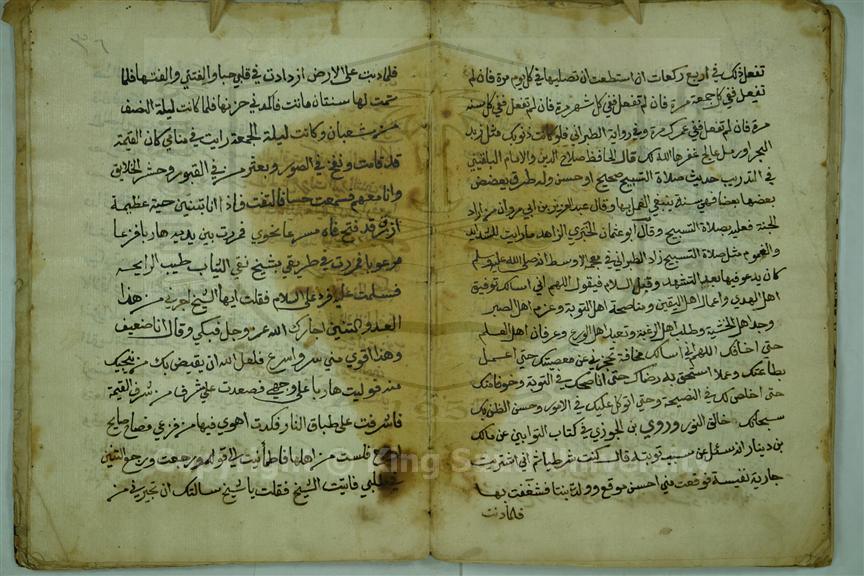 تفعل ذلك في اربع ركعات ان استطعت ان تصليها في كل يوم مرة فان لم
تفعل ففي كل جمعة مرة فان لم تفعل ففي كل شهر مرة فان لم تفعل ففي كل سنه
مرة فان لم تفعل ففي عمرك مرة وفي رواية الطبراني فلو كانت ذنوبك مثل زبد
البحر او رمل عالج غفرها الله لك قال الحافظ صلاح الدين والامام البلقيني
في التدريب حديث صلاة التسبيح صحيح او حسن وله طرق يعضض
بعضها بعضا فهي سنة ينبغي العمل بها وقال عبد العزيز بن ابي مروان من اراد
الجنة فعليه بصلاة التسبيح وقال ابو عثمان الحيري الزاهد ما رايت للشدايد
والغموم مثل صلاة التسبيح زاد الطبراني في معجمه الاوسط انه صلى الله عليه وسلم
كان يدعو فيها بعد التشهد وقبل السلام فيقول اللهم اني اسالك توفيق
اهل الهدي واعمال اهل اليقين ومناصحة اهل التوبة وعزم اهل الصبر
وجد اهل الخشية وطلب اهل الرغبة وتعبد اهل الورع وعرفان اهل العلم
حتى اخافك اللهم اني اسالك مخافة تحجزني عن معصيتك حتى اعمل
بطاعتك عملا استحق به رضاك حتى اناصحك في التوبة وخوفا منك
حتى اخلص لك في النصيحة وحتى اتوكل عليك في الامور وحسن الظن بك
سبحانك خالق النور وروي بن الجوزي في كتاب التوابين عن مالك
بن دينار انه سئل عن سبب توبته قال كنت شرطيا ثم اني اشتريت
جارية نفيسة فوقعت مني احسن موقع وولدت بنتا فشغفت بها
فلما دبت
٣٦
فلما دبت على الارض ازدادت في قلبي حبا والفتني والفتها فلما
تمت لها سنتان ماتت فاكمدني حزنها فلما كانت ليلة النصف
من شعبان وكانت ليلة الجمعة رايت في منامي كان القيمة
قد قامت ونفخ في الصور وبعثر من في القبور وحشر الخلايق
وانا معهم فسمعت حسا فالتفت فاذا انا بتنين حية عظيمة
ازرق قد فتح فاه مسرعا نحوي فمررت بين يديه هاربا فزعا
مرعوبا فمررت في طريقي بشيخ نقي الثياب طيب الرايحه
فسلمت عليه فرد علي السلام فقلت ايها الشيخ اجرني من هذا
العدو التنين اجارك الله عز وجل فبكي وقال انا ضعيف
وهذا اقوي مني مر واسرع فلعل الله ان يقيض لك من ينجيك
منه فوليت هاربا على وجهي فصعدت على شرف من شرف القيمة
فاشرفت على طباق النار فكدت اهوي فيها من فزعي فصاح صايح
ارجع فلست من اهلها فاطمأنيت لقوله ورجعت ورجع التنين
في طلبي فاتيت الشيخ فقلت يا شيخ سالتك ان تجيرني من
© King Saud University
1957